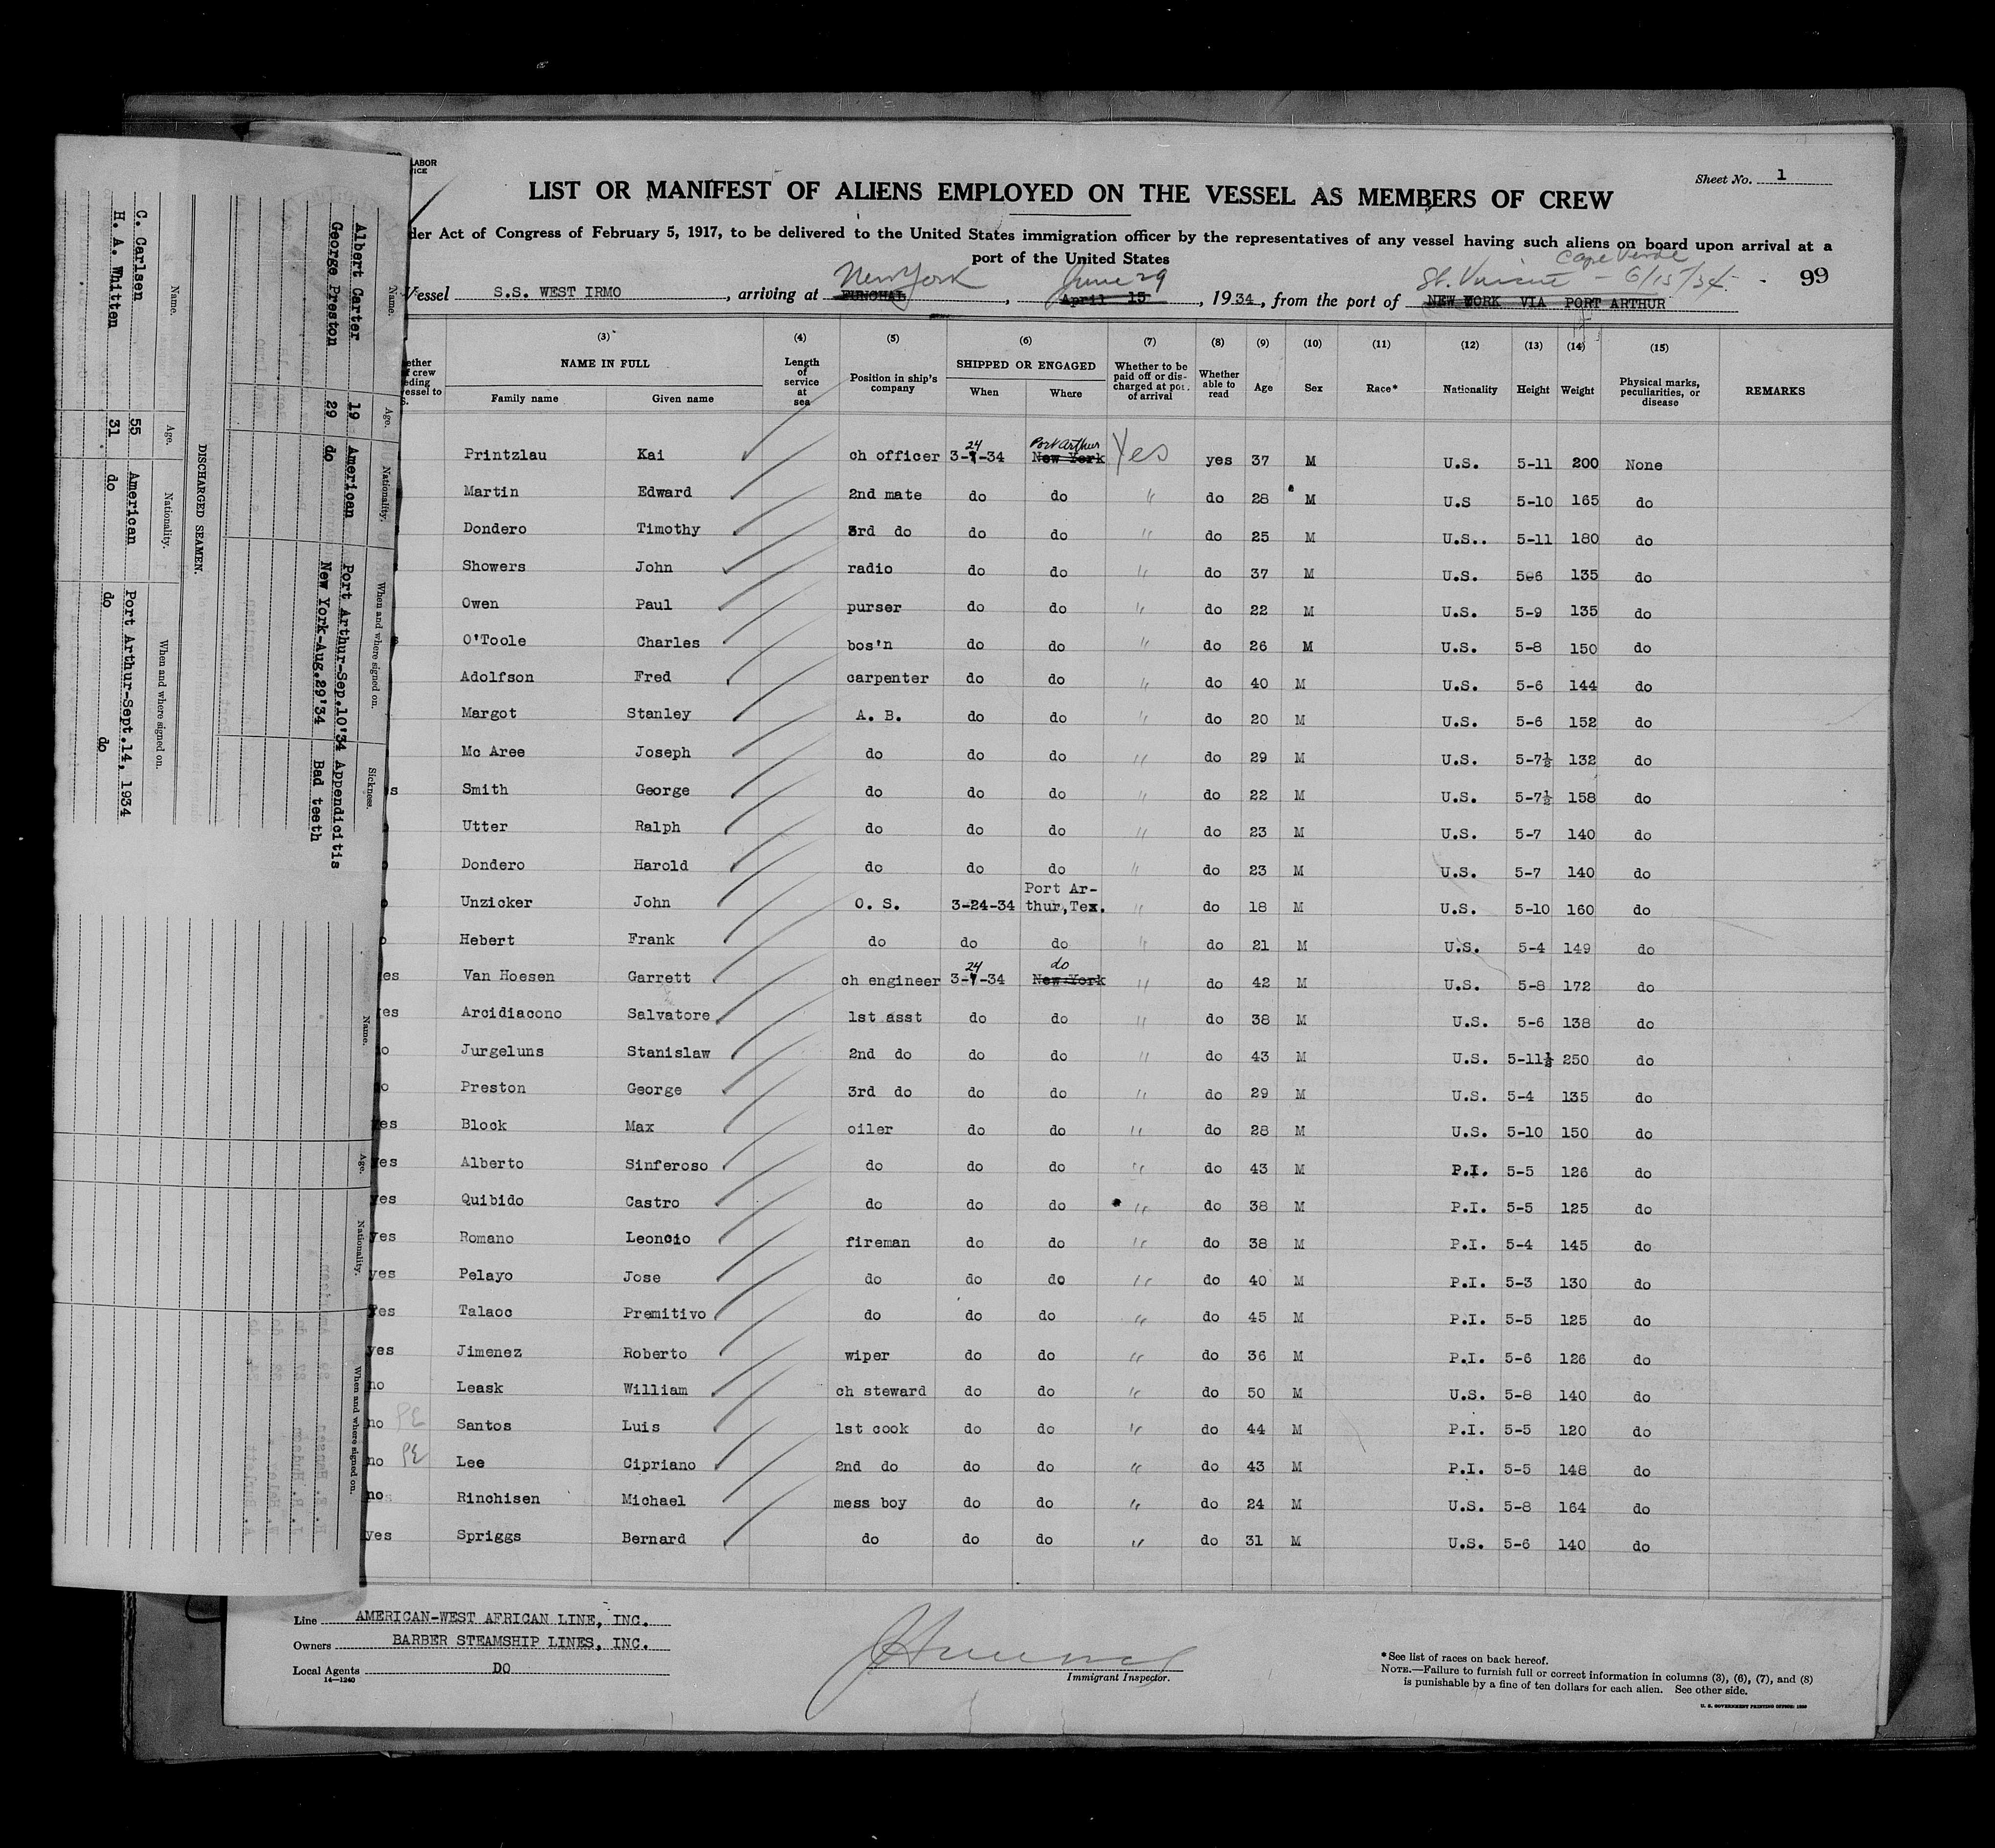 LABOR
Sheet No. 1
LIST OR MANIFEST OF ALIENS EMPLOYED ON THE VESSEL AS MEMBERS OF CREW
der Act of Congress of February 5, 1917, to be delivered to the United States immigration officer by the representatives of any vessel having such aliens on board upon arrival at a
port of the United States
Cape Verde
New York June 29 St. Vincent - 6/15/34 99
Vessel S.S. WEST IRMO, arriving at FUNCHAL, April 15, 1934, from the port of NEW WORK VIA PORT ARTHUR
(3) (4) (5) (6) (7) (8) (9) (10) (11) (12) (13) (14) (15)
NAME IN FULL Length of service at sea Position in ship's company SHIPPED OR ENGAGED Whether to be paid off or discharged at port of arrival Whether able to read Age Sex Race* Nationality Height Weight Physical marks, peculiarities, or disease REMARKS
Family name Given name When Where
24 Port Arthur
Printzlau Kai ch officer 3-7-34 New York Yes yes 37 M U.S. 5-11 200 None
Martin Edward 2nd mate do do " do 28 M U.S 5-10 165 do
Dondero Timothy 3rd do do do " do 25 M U.S.. 5-11 180 do
Showers John radio do do " do 37 M U.S. 506 135 do
Owen Paul purser do do " do 22 M U.S. 5-9 135 do
O'Toole Charles bos'n do do " do 26 M U.S. 5-8 150 do
Adolfson Fred carpenter do do " do 40 M U.S. 5-6 144 do
Margot Stanley A. B. do do " do 20 M U.S. 5-6 152 do
Mc Aree Joseph do do do " do 29 M U.S. 5-7½ 132 do
s Smith George do do do " do 22 M U.S. 5-7½ 158 do
Utter Ralph do do do " do 23 M U.S. 5-7 140 do
Dondero Harold do do do " do 23 M U.S. 5-7 140 do
Port Ar-
Unzicker John O. S. 3-24-34 thur,Tex. " do 18 M U.S. 5-10 160 do
o Hebert Frank do do do " do 21 M U.S. 5-4 149 do
24 do
es Van Hoesen Garrett ch engineer 3-7-34 New York " do 42 M U.S. 5-8 172 do
es Arcidiacono Salvatore 1st asst do do " do 38 M U.S. 5-6 138 do
o Jurgeluns Stanislaw 2nd do do do " do 43 M U.S. 5-11½ 250 do
o Preston George 3rd do do do " do 29 M U.S. 5-4 135 do
es Block Max oiler do do " do 28 M U.S. 5-10 150 do
yes Alberto Sinferoso do do do " do 43 M P.I. 5-5 126 do
yes Quibido Castro do do do " do 38 M P.I. 5-5 125 do
yes Romano Leoncio fireman do do " do 38 M P.I. 5-4 145 do
yes Pelayo Jose do do do " do 40 M P.I. 5-3 130 do
yes Talaoc Premitivo do do do " do 45 M P.I. 5-5 125 do
yes Jimenez Roberto wiper do do " do 36 M P.I. 5-6 126 do
no Leask William ch steward do do " do 50 M U.S. 5-8 140 do
no Santos Luis 1st cook do do " do 44 M P.I. 5-5 120 do
no Lee Cipriano 2nd do do do " do 43 M P.I. 5-5 148 do
no Rinchisen Michael mess boy do do " do 24 M U.S. 5-8 164 do
yes Spriggs Bernard do do do " do 31 M U.S. 5-6 140 do
Line AMERICAN-WEST AFRICAN LINE, INC.
Owners BARBER STEAMSHIP LINES, INC.
Local Agents DO
14—1240
Immigrant Inspector.
*See list of races on back hereof.
NOTE.—Failure to furnish full or correct information in columns (3), (6), (7), and (8)
is punishable by a fine of ten dollars for each alien. See other side.
U. S. GOVERNMENT PRINTING OFFICE
Name. Age. Nationality. When and where signed on. Sickness.
Albert Carter 19 American Port Arthur-Sep.10'34 Appendicitis
George Preston 29 do New York-Aug.29'34 Bad teeth
DISCHARGED SEAMEN.
Name. Age. Nationality. When and where signed on.
C. Carlsen 55 American Port Arthur-Sept.14, 1934
H. A. Whitten 31 do do do
Name. Age. Nationality. When and where signed on.